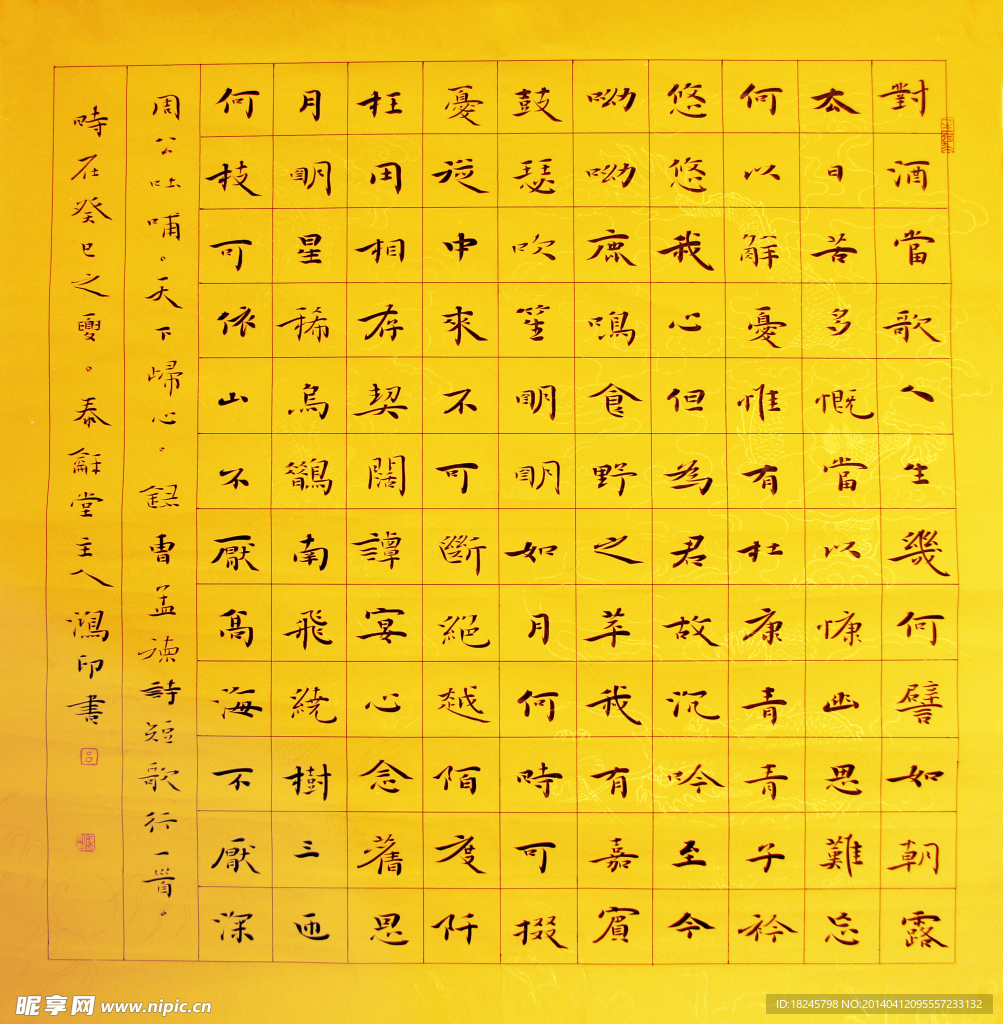 對酒當歌人生幾何譬如朝露
去日苦多慨當以慷幽思難忘
何以解憂惟有杜康青青子衿
悠悠我心但為君故沉吟至今
呦呦鹿鳴食野之苹我有嘉賓
鼓瑟吹笙明明如月何時可掇
憂從中來不可斷絕越陌度阡
枉用相存契闊譚宴心念舊恩
月明星稀烏鵲南飛繞樹三匝
何枝可依山不厭高海不厭深
周公吐哺。天下歸心。錄曹孟德詩短歌行一首。
時在癸巳之夏。泰龢堂主人鴻印書
昵享网 www.nipic.cn
ID:18245798 NO:20140412095557233132